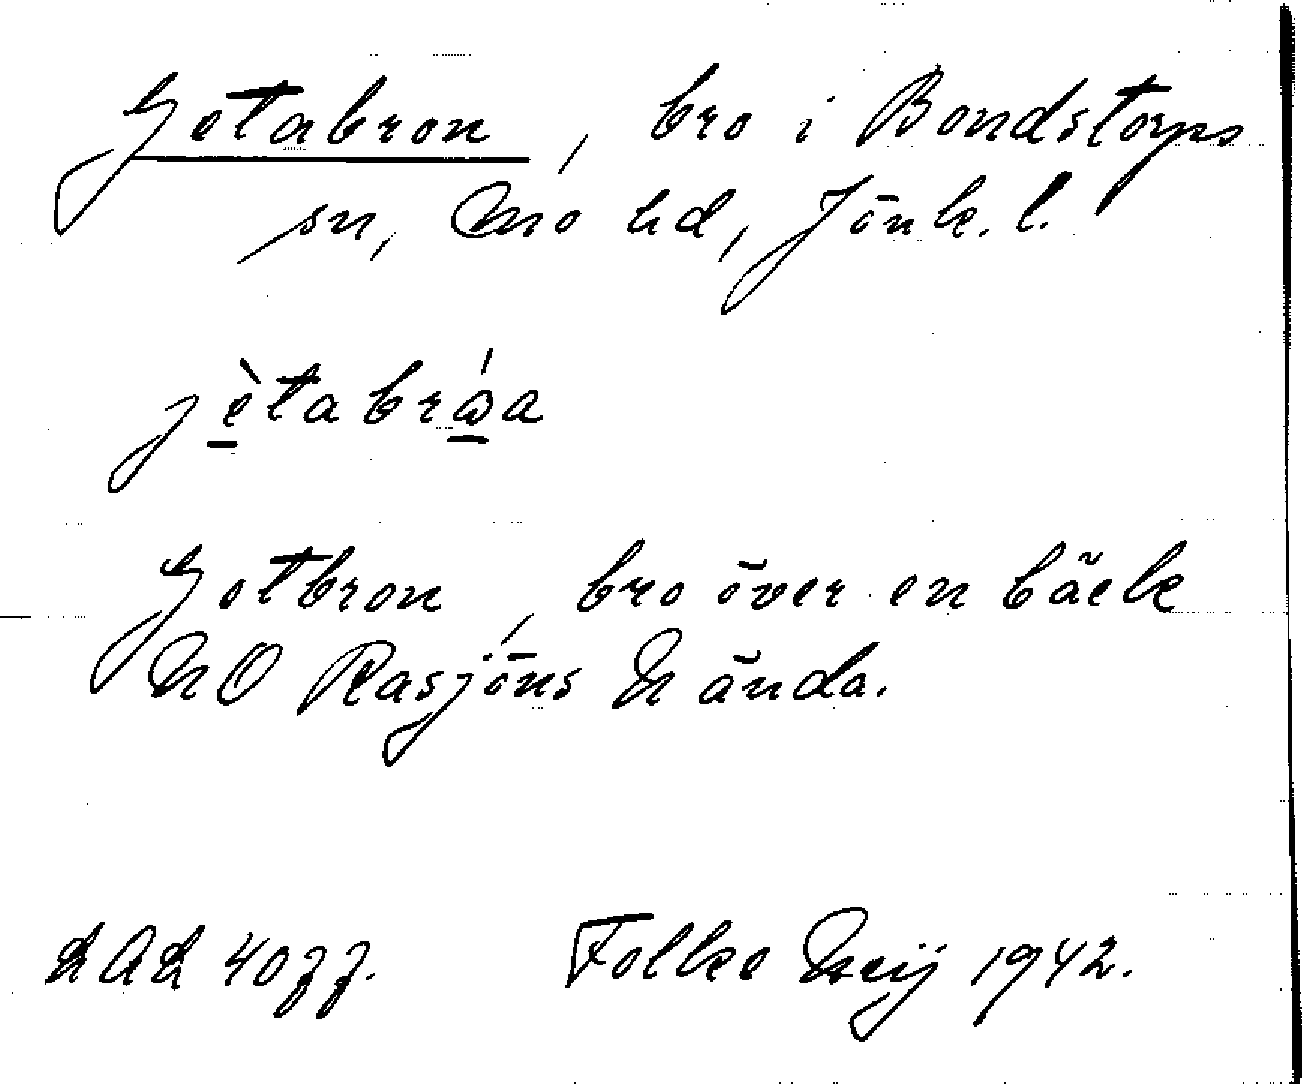 Getabron, bro i Bondstorps
sn, Mo hd, Jönk. l.
jètabróa
Getbron, bro över en bäck
NO Rasjöns N ända.
LAL 40 ff. Folke Meij 1942.